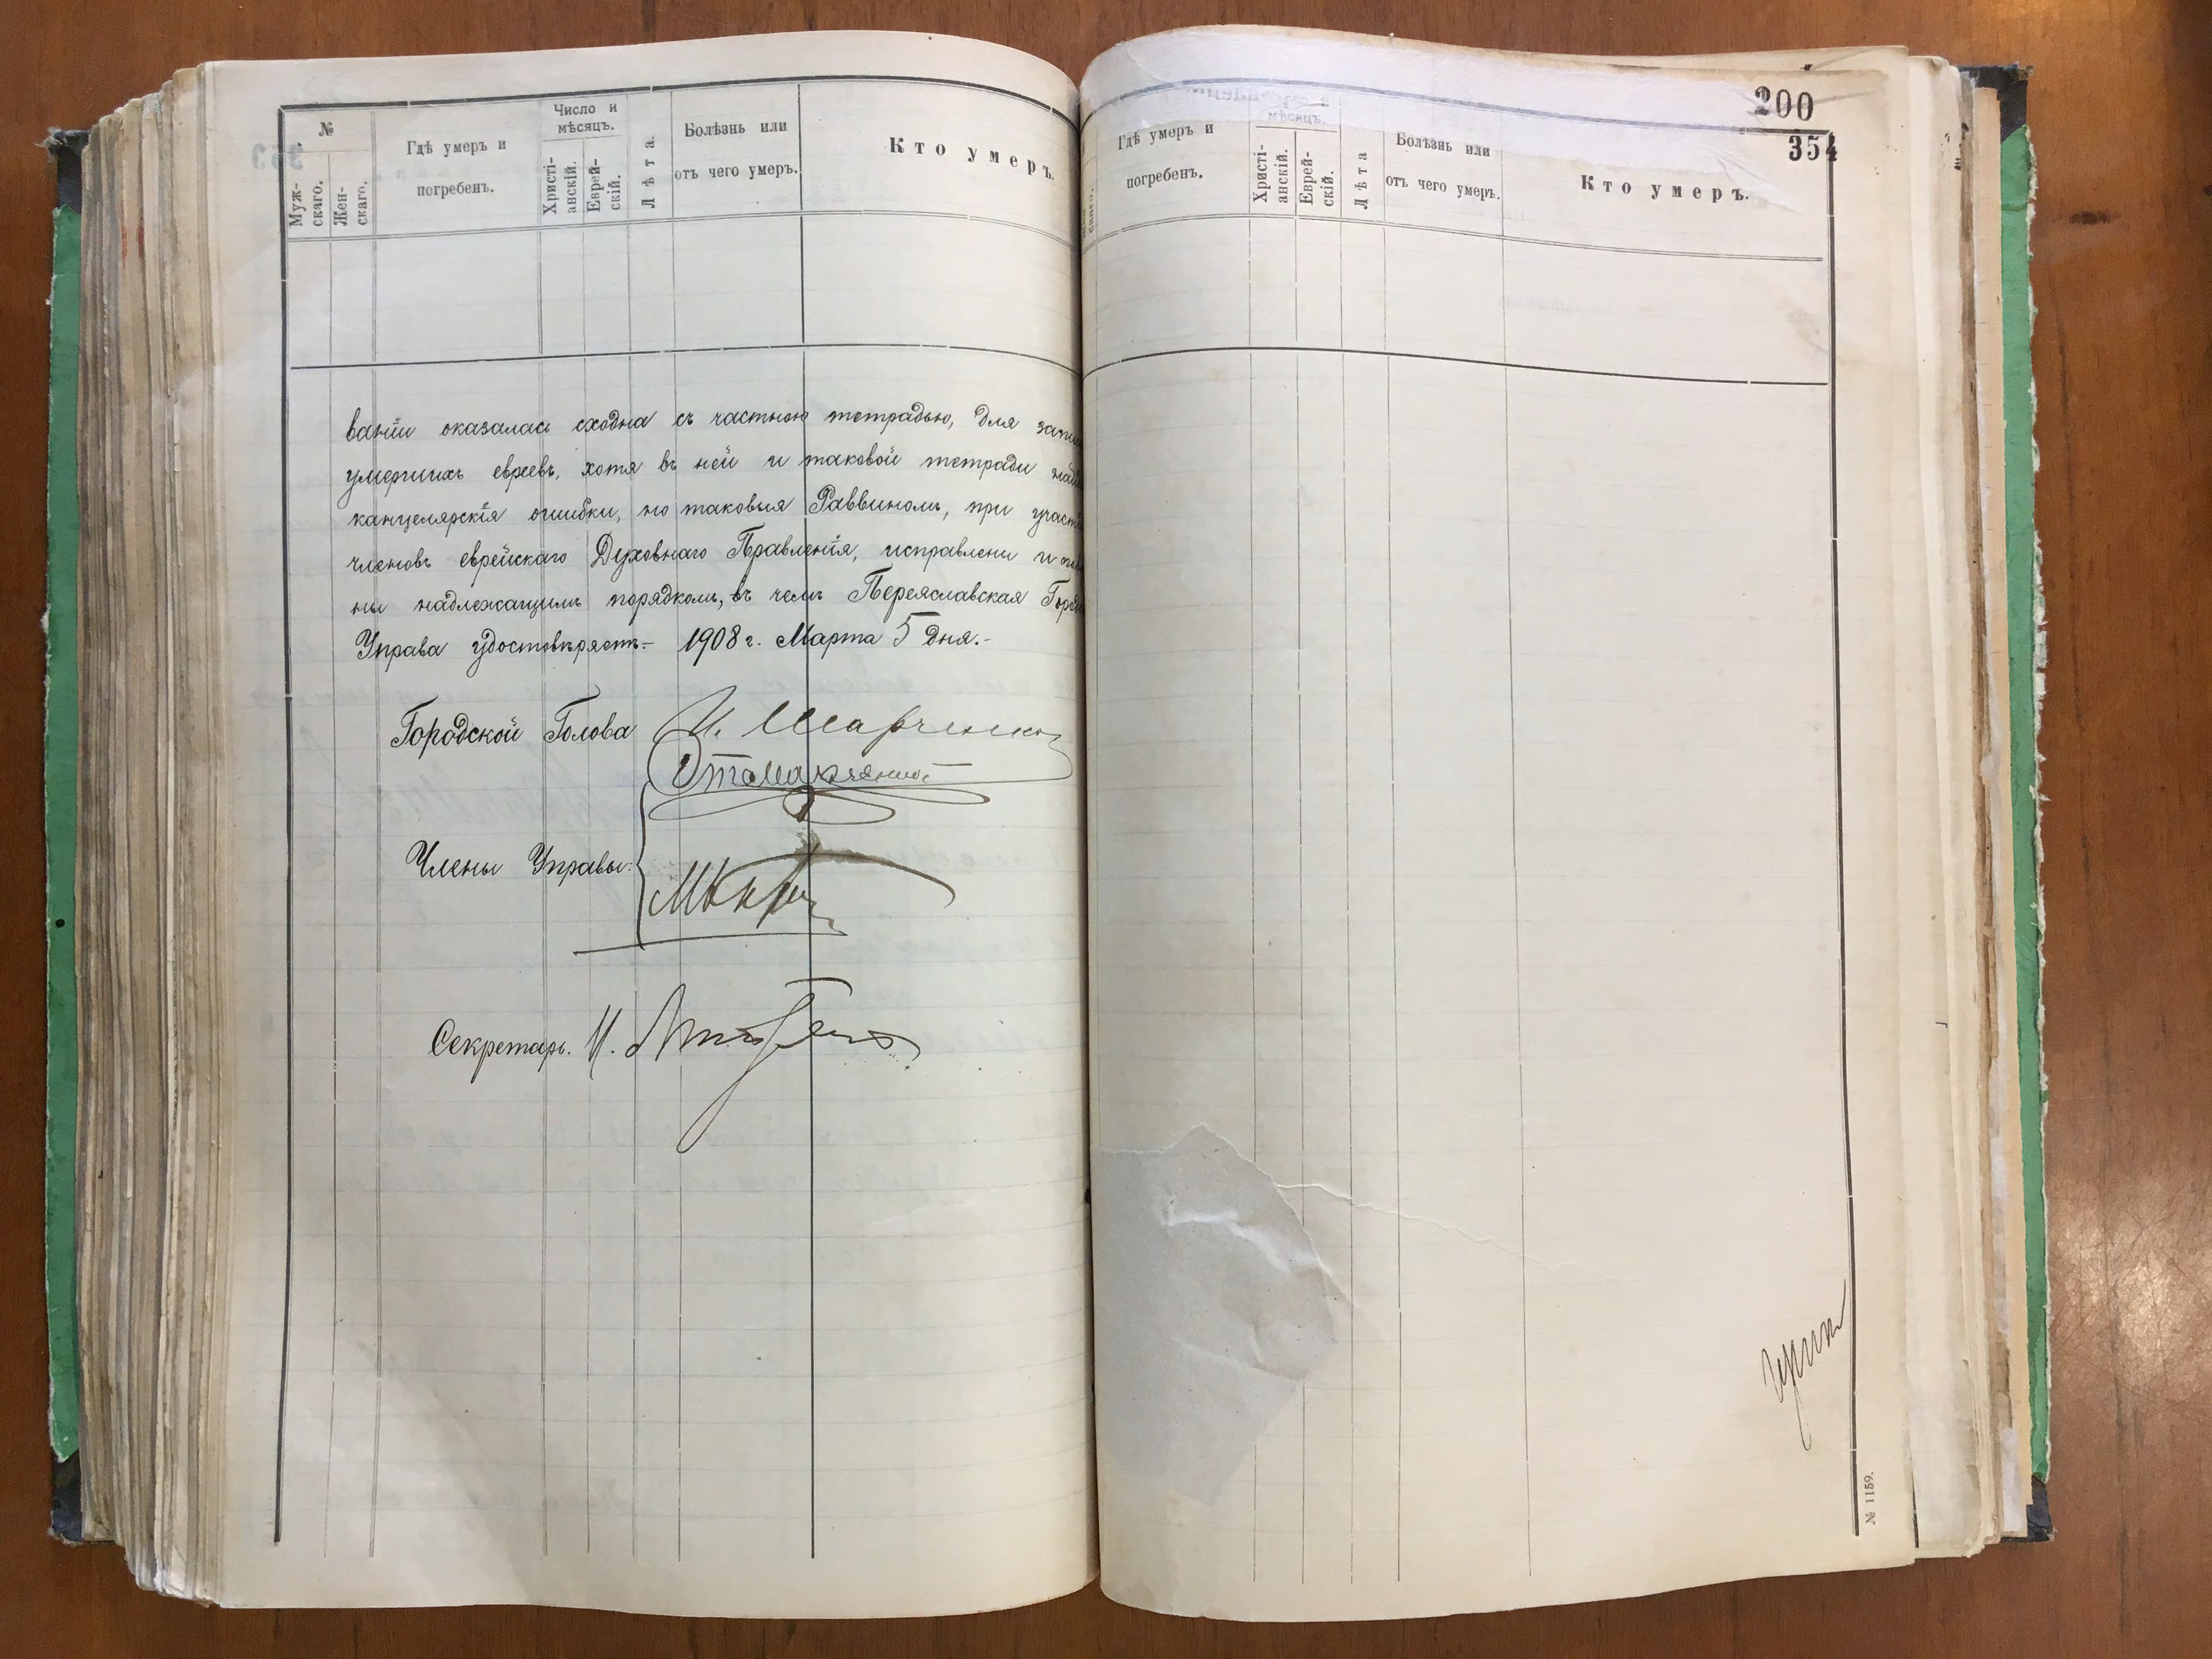 №
Муж-
скаго.
Жен-
скаго.
Гдѣ умеръ и
погребенъ.
Число и
мѣсяцъ.
Христі-
анскій.
Еврей-
скій.
Лѣта.
Болѣзнь или
отъ чего умеръ.
Кто умеръ.
ваніи оказалась сходна съ частною тетрадью, для
умершихъ евреевъ, хотя въ ней и таковой тетради
канцелярскія ошибки, но таковыя Раввиномъ, при
членовъ еврейскаго Духовнаго Правленія, исправлены и
ны надлежащимъ порядкомъ, въ чемъ Переяславская
Управа удостовѣряетъ.– 1908 г. Марта 5 дня.–
Городской Голова И.
Члены Управы:
Секретарь. И.
200
354
Гдѣ умеръ и
погребенъ.
мѣсяцъ.
Христі-
анскій.
Еврей-
скій.
Лѣта
Болѣзнь или
отъ чего умеръ.
Кто умеръ.
№ 1159.